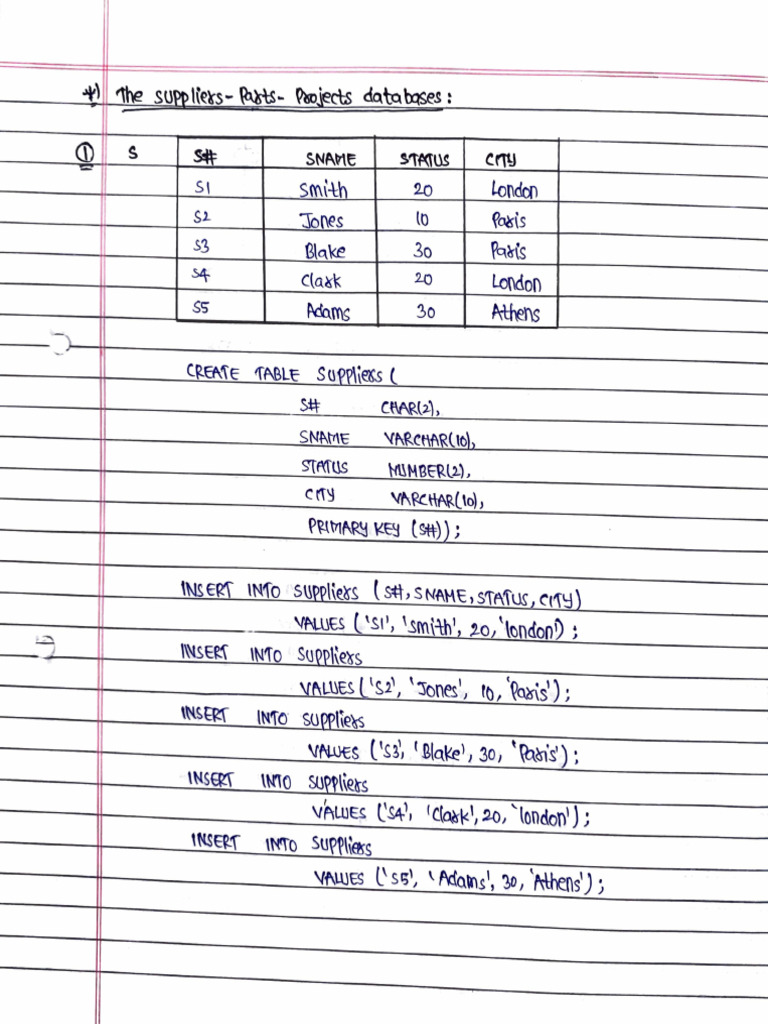 *) The suppliers-Parts-Projects databases:
① S S# SNAME STATUS CITY
S1 Smith 20 London
S2 Jones 10 Paris
S3 Blake 30 Paris
S4 Clark 20 London
S5 Adams 30 Athens
CREATE TABLE Suppliers (
S# CHAR(2),
SNAME VARCHAR(10),
STATUS NUMBER(2),
CITY VARCHAR(10),
PRIMARY KEY (S#));
INSERT INTO Suppliers (S#, SNAME, STATUS, CITY)
VALUES ('S1', 'Smith', 20, 'london');
INSERT INTO Suppliers
VALUES ('S2', 'Jones', 10, 'Paris');
INSERT INTO Suppliers
VALUES ('S3', 'Blake', 30, 'Paris');
INSERT INTO Suppliers
VALUES ('S4', 'Clark', 20, 'london');
INSERT INTO Suppliers
VALUES ('S5', 'Adams', 30, 'Athens');